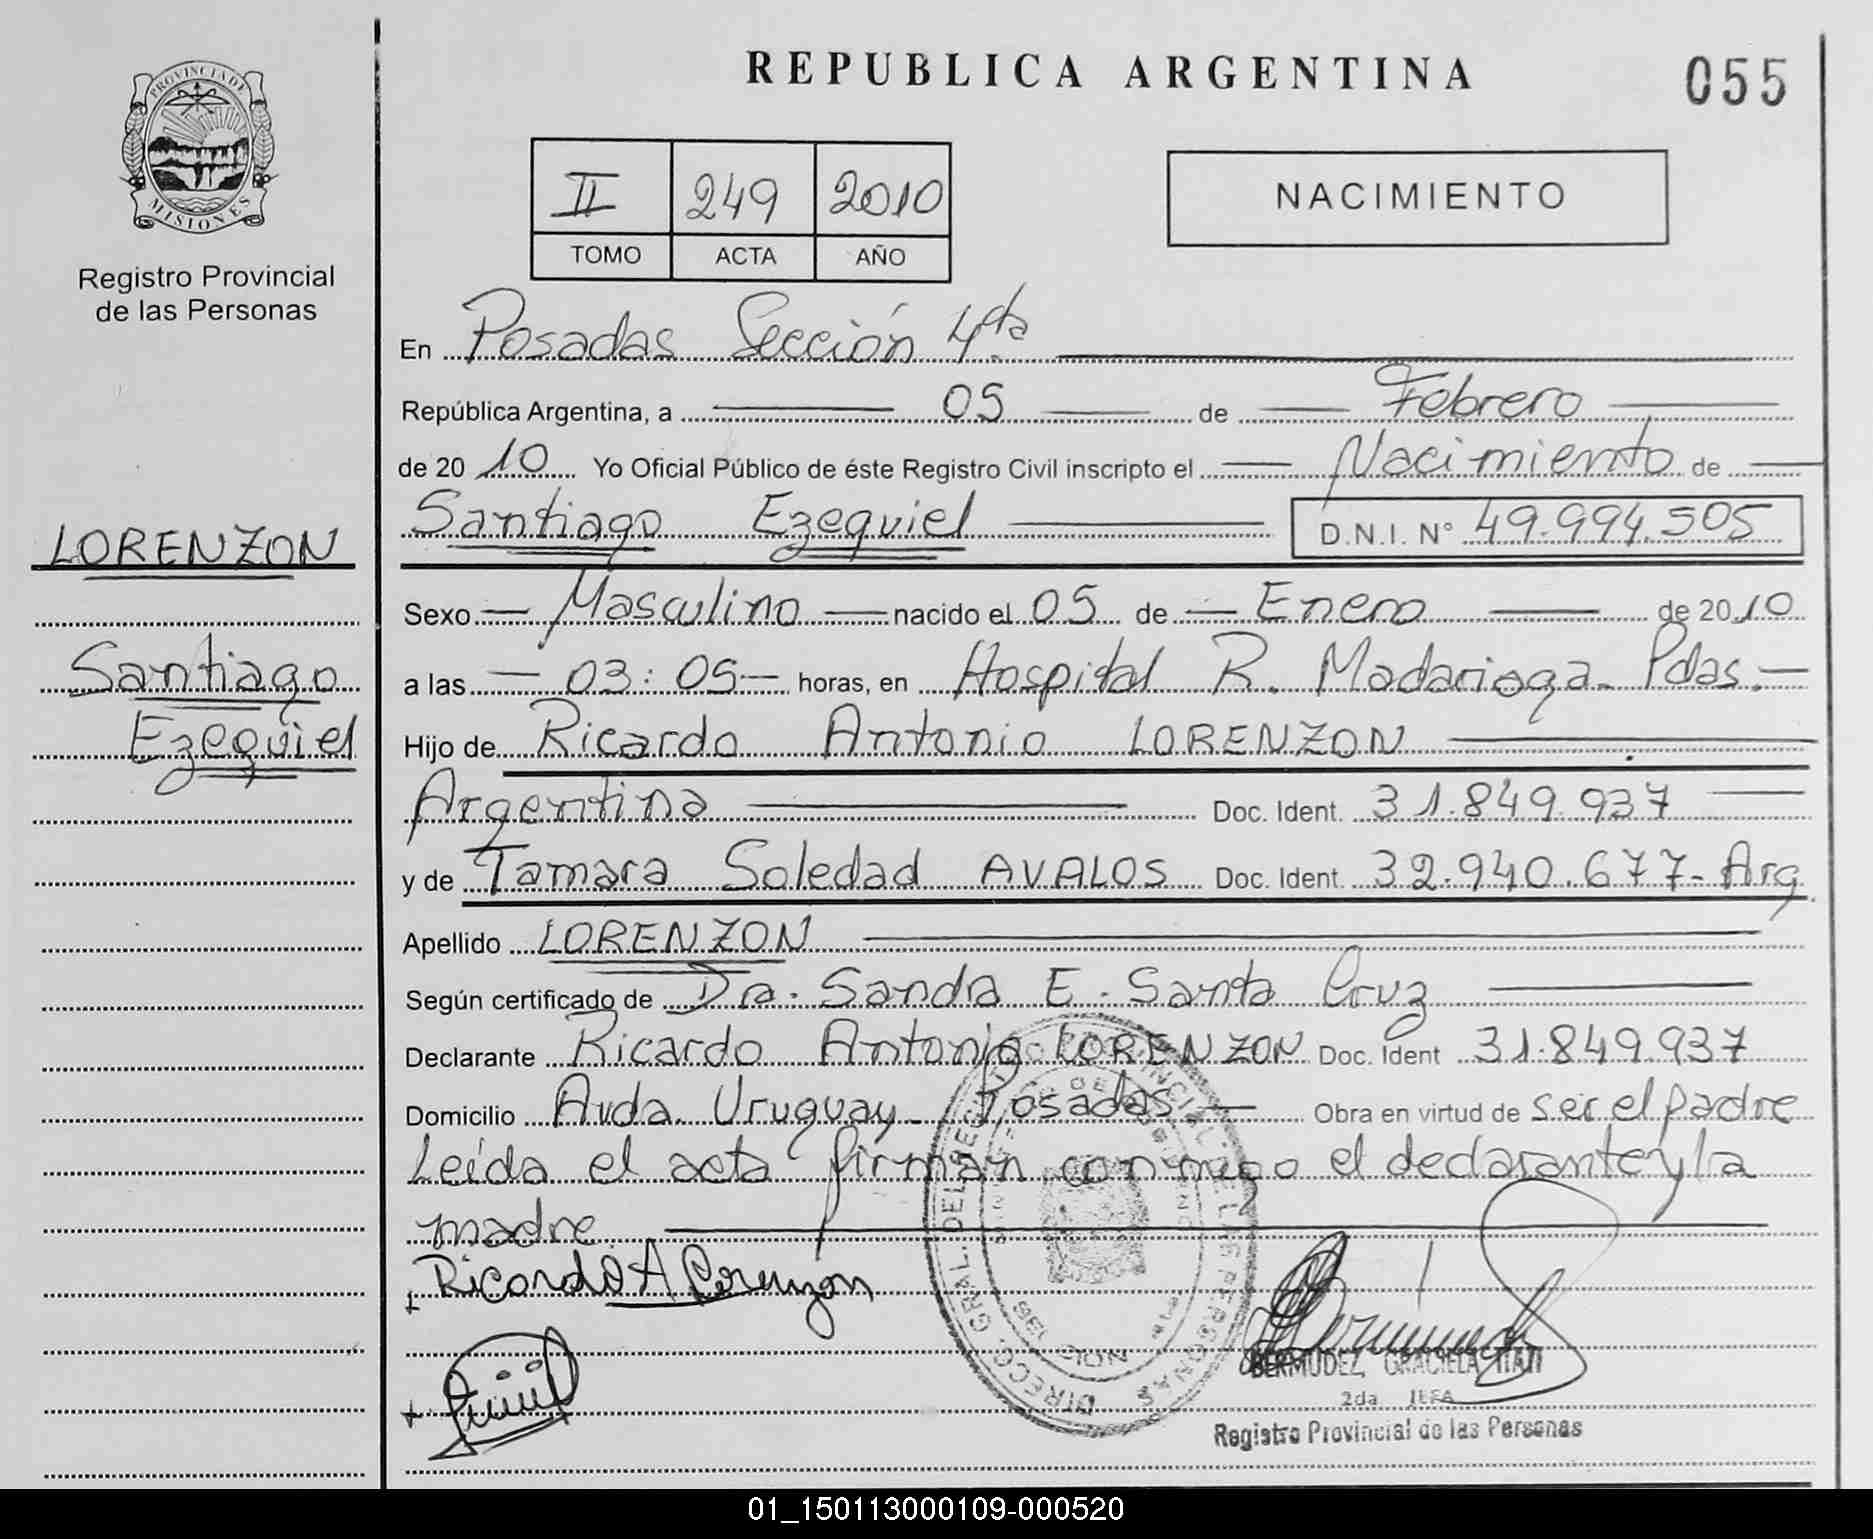 REPUBLICA ARGENTINA
055
PROVINCIA DE
MISIONES
Registro Provincial
de las Personas
II 249 2010
TOMO ACTA AÑO
NACIMIENTO
En Posadas Sección 4ta
República Argentina, a 05 de Febrero
de 2010 Yo Oficial Público de éste Registro Civil inscripto el Nacimiento de
Santiago Ezequiel D.N.I. N° 49.994.505
LORENZON
Santiago
Ezequiel
Sexo Masculino nacido el 05 de Enero de 2010
a las 03:05 horas, en Hospital R. Madariaga - Pdas.
Hijo de Ricardo Antonio LORENZON
Argentina Doc. Ident. 31.849.937
y de Tamara Soledad AVALOS Doc. Ident. 32.940.677 - Arg.
Apellido LORENZON
Según certificado de Dra. Sandra E. Santa Cruz
Declarante Ricardo Antonio LORENZON Doc. Ident 31.849.937
Domicilio Avda. Uruguay - Posadas Obra en virtud de ser el padre
Leída el acta firman conmigo el declarante y la
madre
Ricardo A Lorenzon
BERMUDEZ GRACIELA ITATI
2da JEFA
Registro Provincial de las Personas
01_150113000109-000520